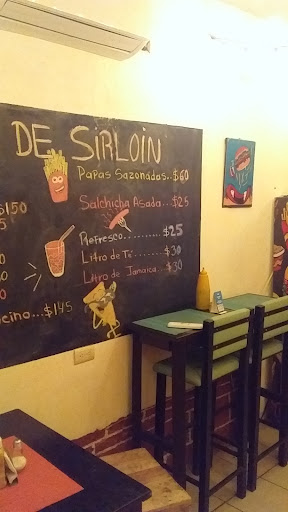 DE SIRLOIN
Papas Sazonadas..$60
Salchicha Asada...$25
$150
Refresco..........$25
Litro de Té.......$30
Litro de Jamaica..$30
cino...$145